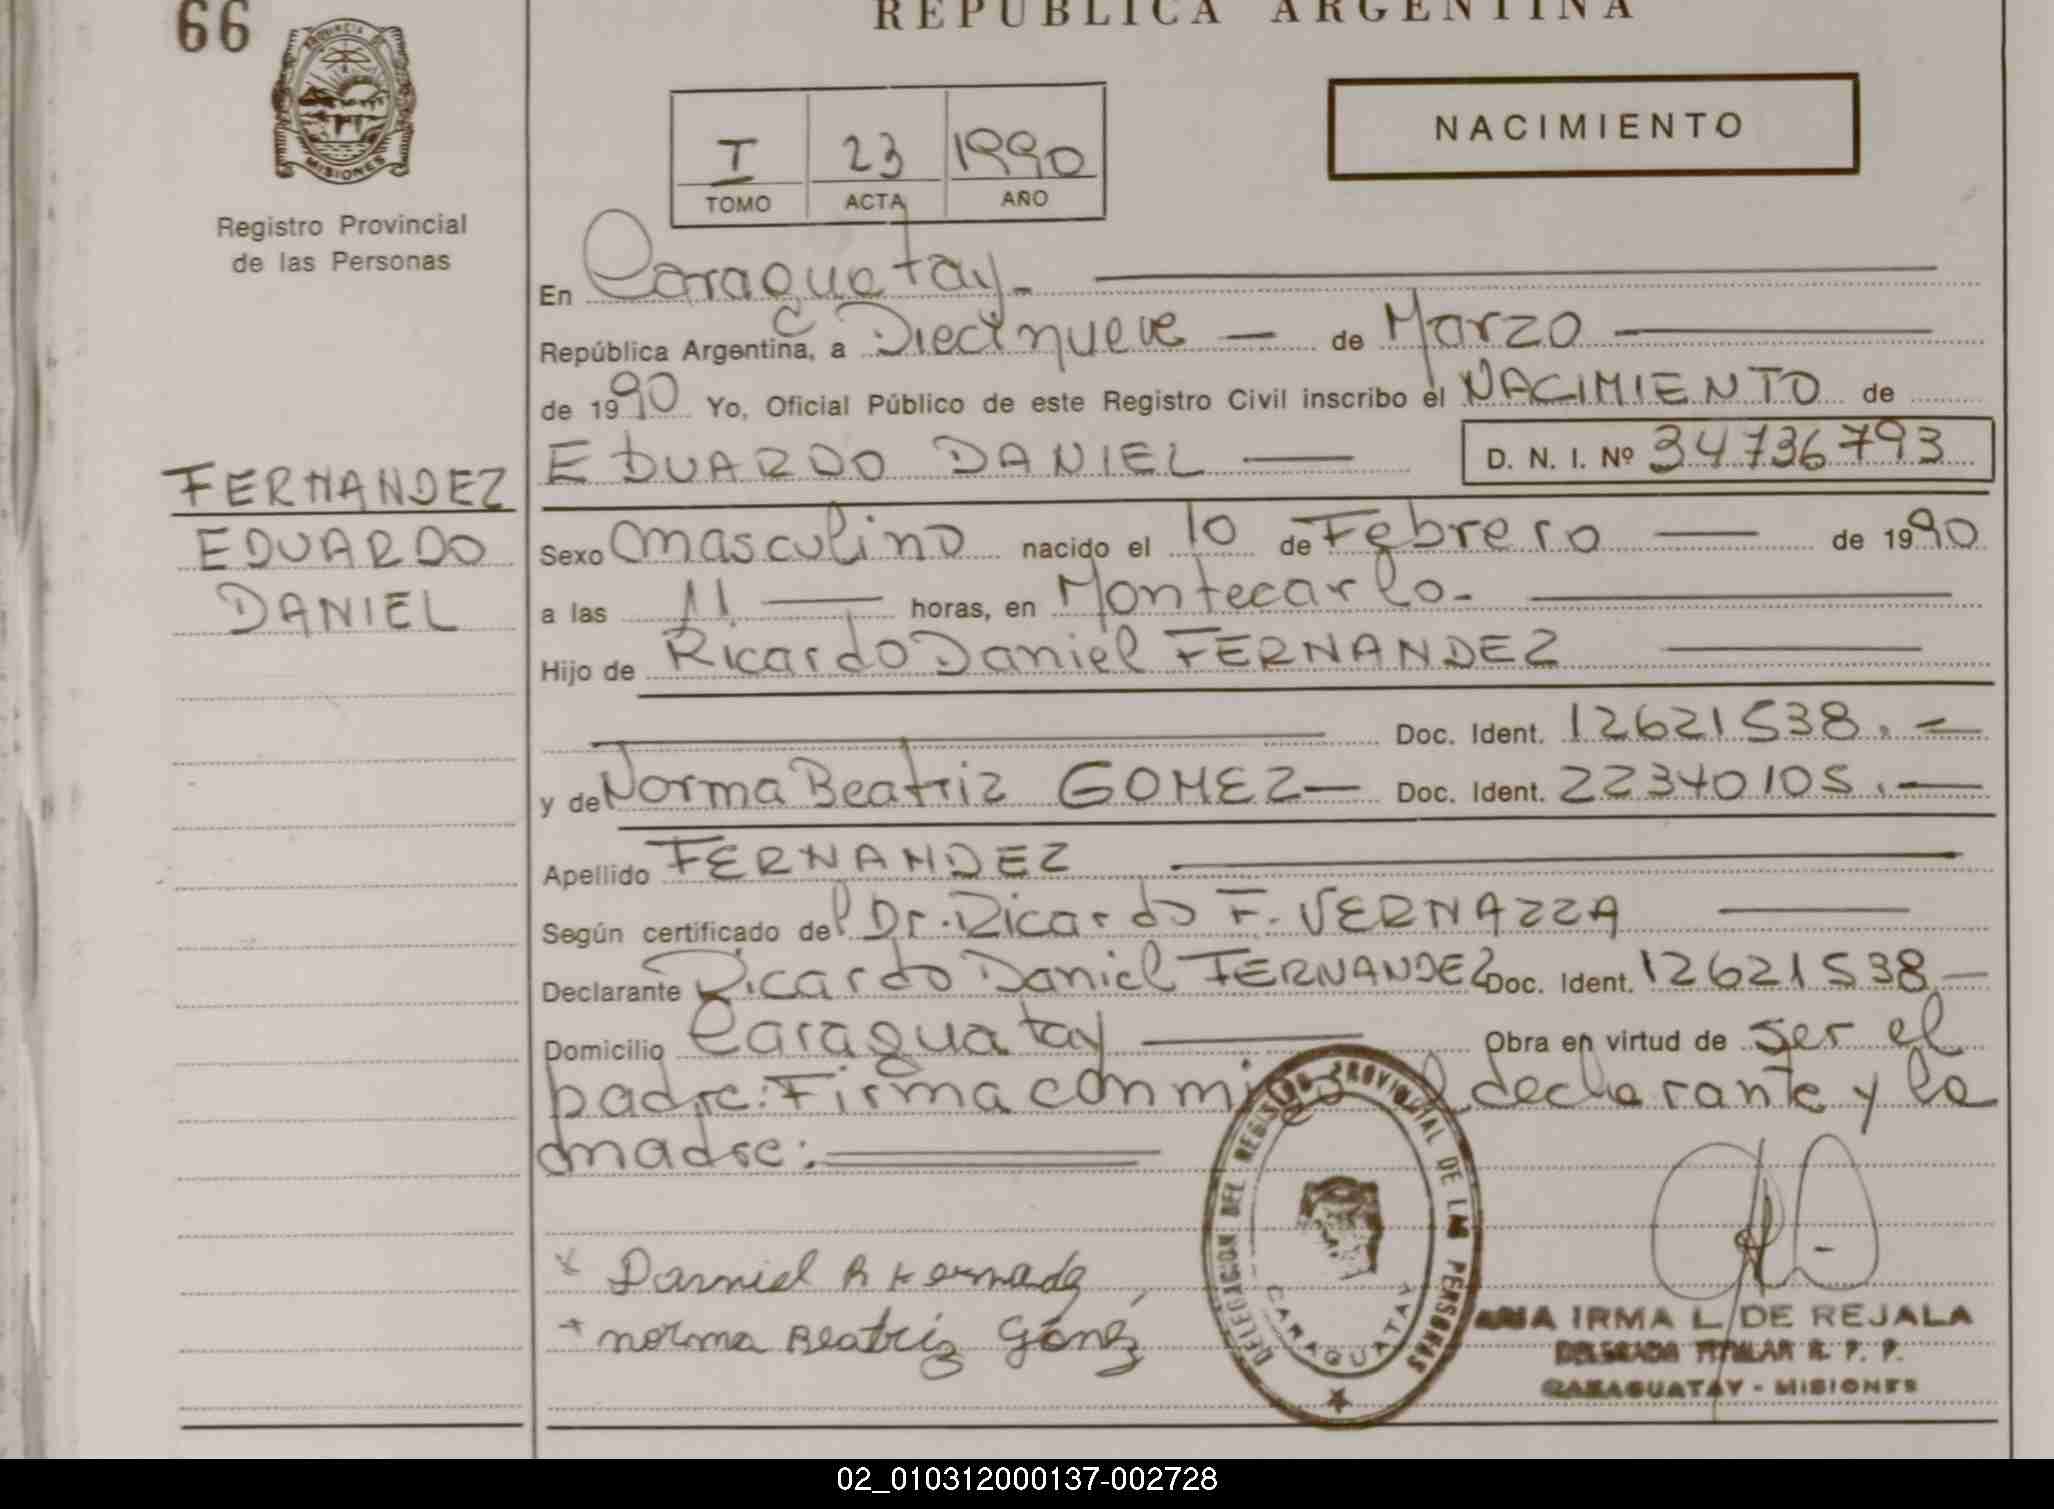 66
REPUBLICA ARGENTINA
PROVINCIA DE
MISIONES
Registro Provincial
de las Personas
I 23 1990
TOMO ACTA AÑO
NACIMIENTO
En Caraguatay.
República Argentina, a Diecinueve de Marzo
de 1990 Yo, Oficial Público de este Registro Civil inscribo el NACIMIENTO de
EDUARDO DANIEL D. N. I. Nº 34736793
FERNANDEZ
EDUARDO
DANIEL
Sexo masculino nacido el 10 de Febrero de 1990
a las 11 horas, en Montecarlo.
Hijo de Ricardo Daniel FERNANDEZ
Doc. Ident. 12621538.
y de Norma Beatriz GOMEZ Doc. Ident. 22340105.
Apellido FERNANDEZ
Según certificado del Dr. Ricardo F. VERNAZZA
Declarante Ricardo Daniel FERNANDEZ Doc. Ident. 12621538
Domicilio Caraguatay Obra en virtud de ser el
padre: Firma conmigo el declarante y la
madre:
DELEGACION DEL REGISTRO PROVINCIAL DE LAS PERSONAS
CARAGUATAY
Daniel R
norma Beatriz Gómez
IRMA L. DE REJALA
DELEGADA TITULAR R. P. P.
CARAGUATAY - MISIONES
02_010312000137-002728